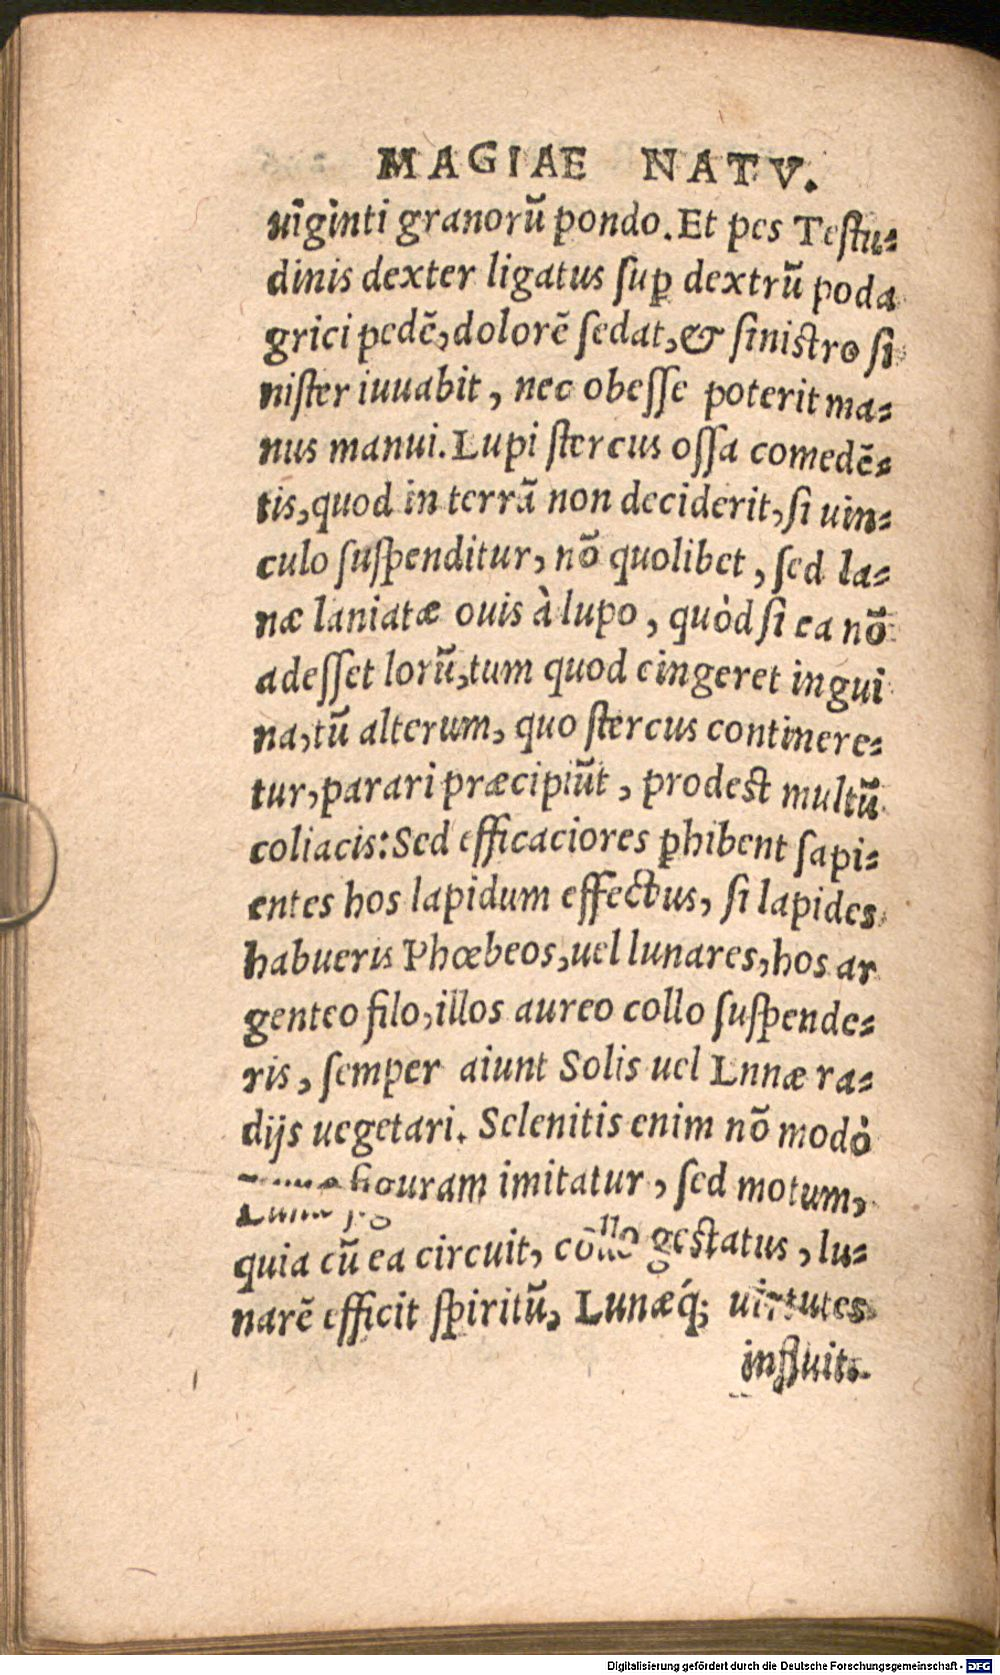 MAGIAE NATV.
uiginti granorũ pondo. Et pes Testu-
dinis dexter ligatus sup̱ dextrũ poda
grici pedẽ, dolorẽ sedat, & sinistro si
nister iuuabit, nec obesse poterit ma-
nus manui. Lupi stercus ossa comedẽ-
tis, quod in terrã non deciderit, si uin-
culo suspenditur, nõ quolibet, sed la-
næ laniatæ ouis à lupo, quòd si ea nõ
adesset lorũ, tum quod cingeret ingui
na, tũ alterum, quo stercus continere-
tur, parari præcipiũt, prodest multũ
coliacis: Sed efficaciores ꝑhibent sapi-
entes hos lapidum effectus, si lapides
habueris Phœbeos, uel lunares, hos ar
genteo filo, illos aureo collo suspende-
ris, semper aiunt Solis uel Lnnæ ra-
dijs uegetari. Selenitis enim nõ modò
Lunæ figuram imitatur, sed motum,
quia cũ ea circuit, collo gestatus, lu-
narẽ efficit spiritũ, Lunæq́; uirtutes
influit.
Digitalisierung gefördert durch die Deutsche Forschungsgemeinschaft - DFG